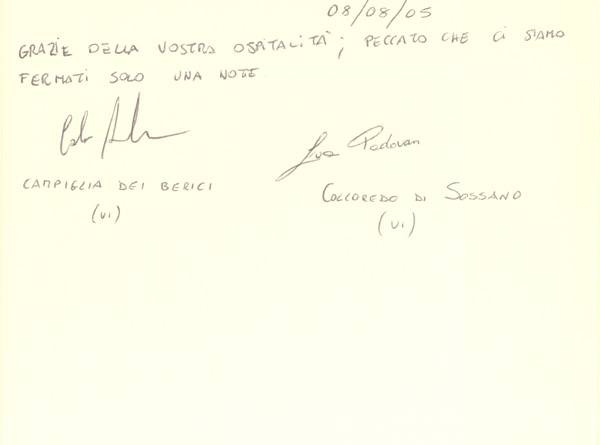 08/08/05
GRAZIE DELLA VOSTRA OSPITALITÀ; PECCATO CHE CI SIAMO
FERMATI SOLO UNA NOTE
Luca Padovan
CAMPIGLIA DEI BERICI
COLLOREDO DI SOSSANO
(VI)
(VI)